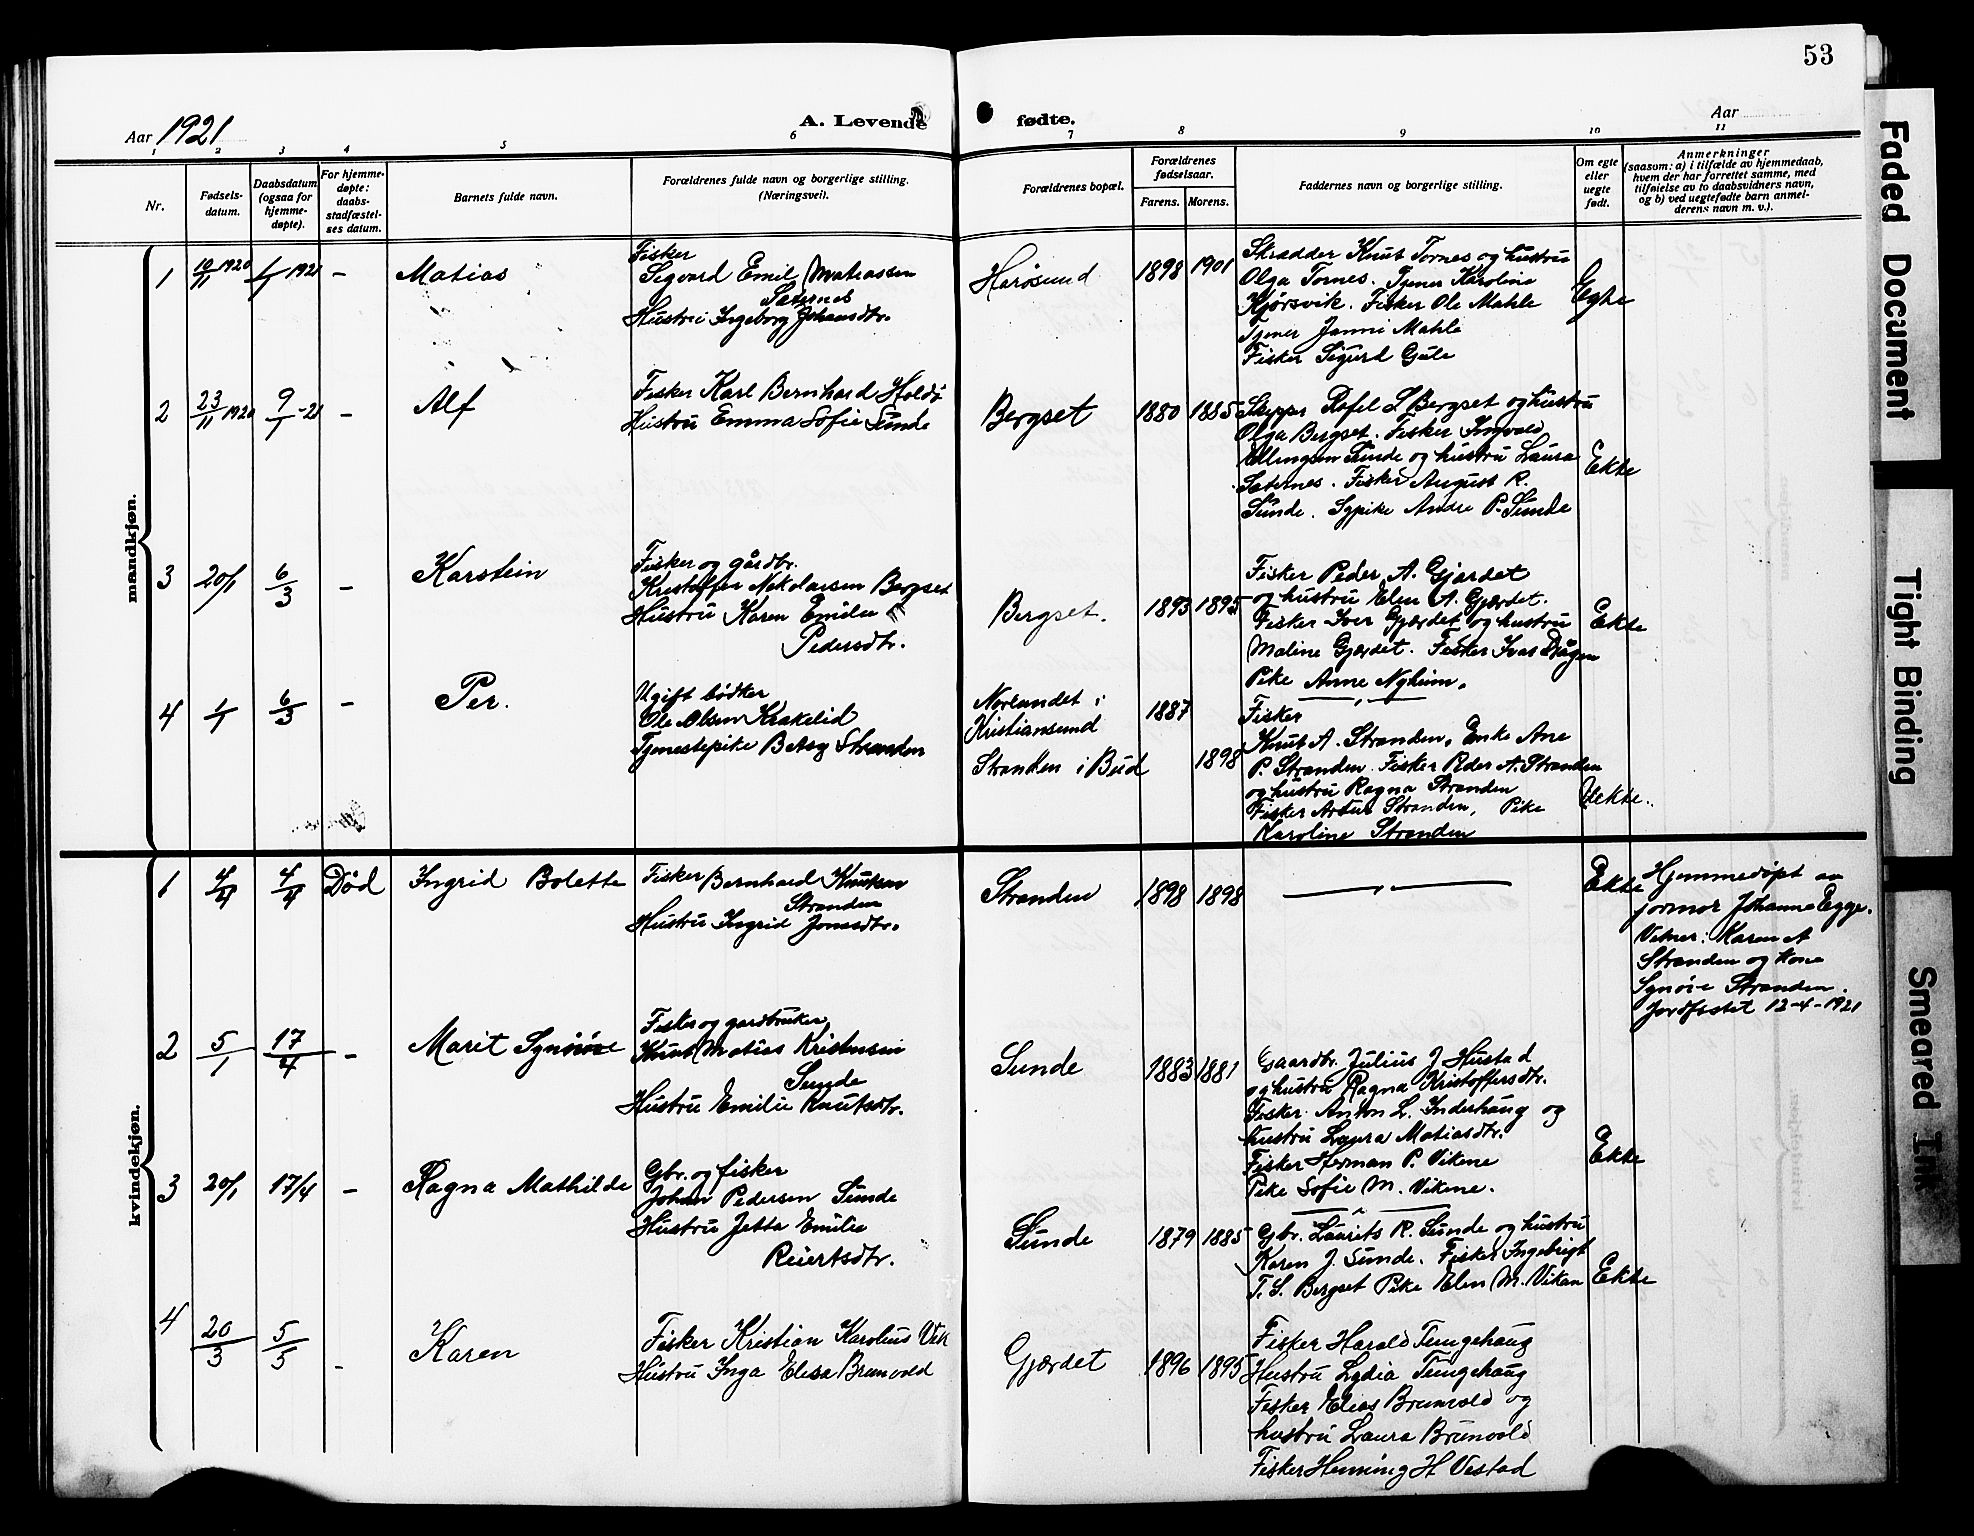 53
Aar 1921
A. Levende fødte.
Aar
1 2 3 4 5 6 7 8 9 10 11
Nr.
Fødsels-
datum.
Daabsdatum
(ogsaa for
hjemme-
døpte).
For hjemme-
døpte:
daabs-
stadfæstel-
ses datum.
Barnets fulde navn.
Forældrenes fulde navn og borgerlige stilling.
(Næringsvei).
Forældrenes bopæl.
Forældrenes
fødselsaar.
Farens. Morens.
Faddernes navn og borgerlige stilling.
Om egte
eller
uegte
født.
Anmerkninger
(saasom: a) i tilfælde av hjemmedaab,
hvem der har forrettet samme, med
tilføielse av to daabsvidners navn,
og b) ved uegtefødte barn anmel-
derens navn m. v.).
mandkjøn.
1
10/11 1920
1/1 1921
-
Matias
Fisker
Sigvard Emil Matiassen
Sæternes
Hustru Ingeborg Johansdtr.
Harøsund
1898 1901
Skrædder Knut Tornes og hustru
Olga Tornes. Tjener Karoline
Hjørsvik. Fisker Ole Mahle
Tjener Janni Mahle
Fisker Sigurd Gule
Egte
2
23/11 1920
9/1 -21
-
Alf
Fisker Karl Bernhard Holdø
Hustru Emma Sofie Sunde
Bergset
1880 1885
Skipper Rafel L Bergset og hustru
Olga Bergset. Fisker Ingvald
Ellingsen Sunde og hustru Laura
Sæternes. Fisker August R.
Sunde. Sypike Andre P. Sunde
Ekte
3
20/1
6/3
-
Karstein
Fisker og gårdbr.
Kristoffer Nikolaisen Bergset
Hustru Karen Emilie
Pedersdtr.
Bergset.
1893 1895
Fisker Peder A. Gjærdet
og hustru Elen A. Gjærdet.
Fisker Iver Gjærdet og hustru
Maline Gjærdet. Fisker Ivar Dågen
Pike Anne Nyheim.
Ekte
4
1/1
6/3
-
Per.
Ugift bødker
Ole Olsen Krakelid
Tjenestepike Betsy Stranden
Norlandet i
Kristiansund
Stranden i Bud
1887
1898
Fisker
Knut A. Stranden, Enke Ane
P. Stranden. Fisker Peder A. Stranden
og hustru Ragna Stranden
Fisker Artur Stranden, Pike
Karoline Stranden
Uekte.
kvindekjøn.
1
4/4
4/4
Død
Ingrid Bolette
Fisker Bernhard Knutsen
Stranden
Hustru Ingrid Jonsdtr.
Stranden
1898 1898
Ekte
Hjemmedøpt av
jormor Johanne Egge.
Vitner: Karen A
Stranden og kone
Synøve Stranden.
Jordfestet 12-4-1921
2
5/1
17/4
-
Marit Synøve
Fisker og gardbruker
Knut Matias Kristensen
Sunde
Hustru Emilie Knutsdtr.
Sunde
1883 1881
Gaardbr. Julius J Hustad
og hustru Ragna Kristoffersdtr.
Fisker Anton L. Inderhaug og
hustru Laura Matiasdtr.
Fisker Herman P. Vikene
Pike Sofie M. Vikene.
Ekte
3
20/1
17/4
-
Ragna Mathilde
Gbr. og fisker
Johan Pedersen Sunde
Hustru Jetta Emilie
Reiertsdtr.
Sunde
1879 1885
Gbr. Laurits R. Sunde og hustru
Karen J. Sunde. Fisker Ingebrigt
T. S. Bergset Pike Elen M. Vikan
Ekte
4
20/3
5/5
-
Karen
Fisker Kristian Karolius Vik
Hustru Inga Elisa Brunvold
Gjærdet
1896 1895
Fisker Harald Tungehaug
Hustru Lydia Tungehaug
Fisker Elias Brunvold og
hustru Laura Brunvold
Fisker Henning H Vestad
Faded Document
Tight Binding
Smeared Ink